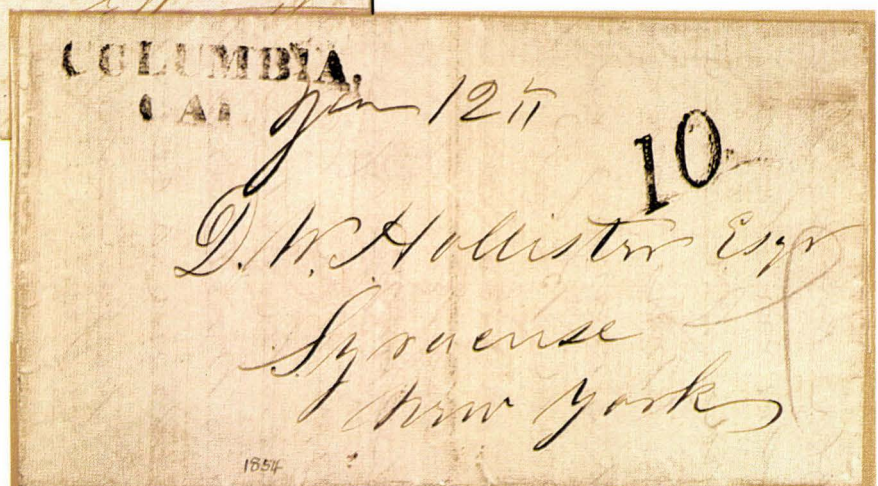 COLUMBIA,
CAL
Jan 12
10
D. W. Hollister Esqr
Syracuse
New York
1854